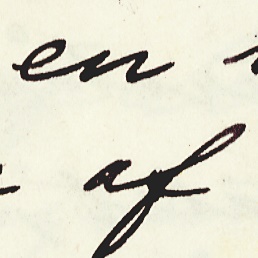 en
af